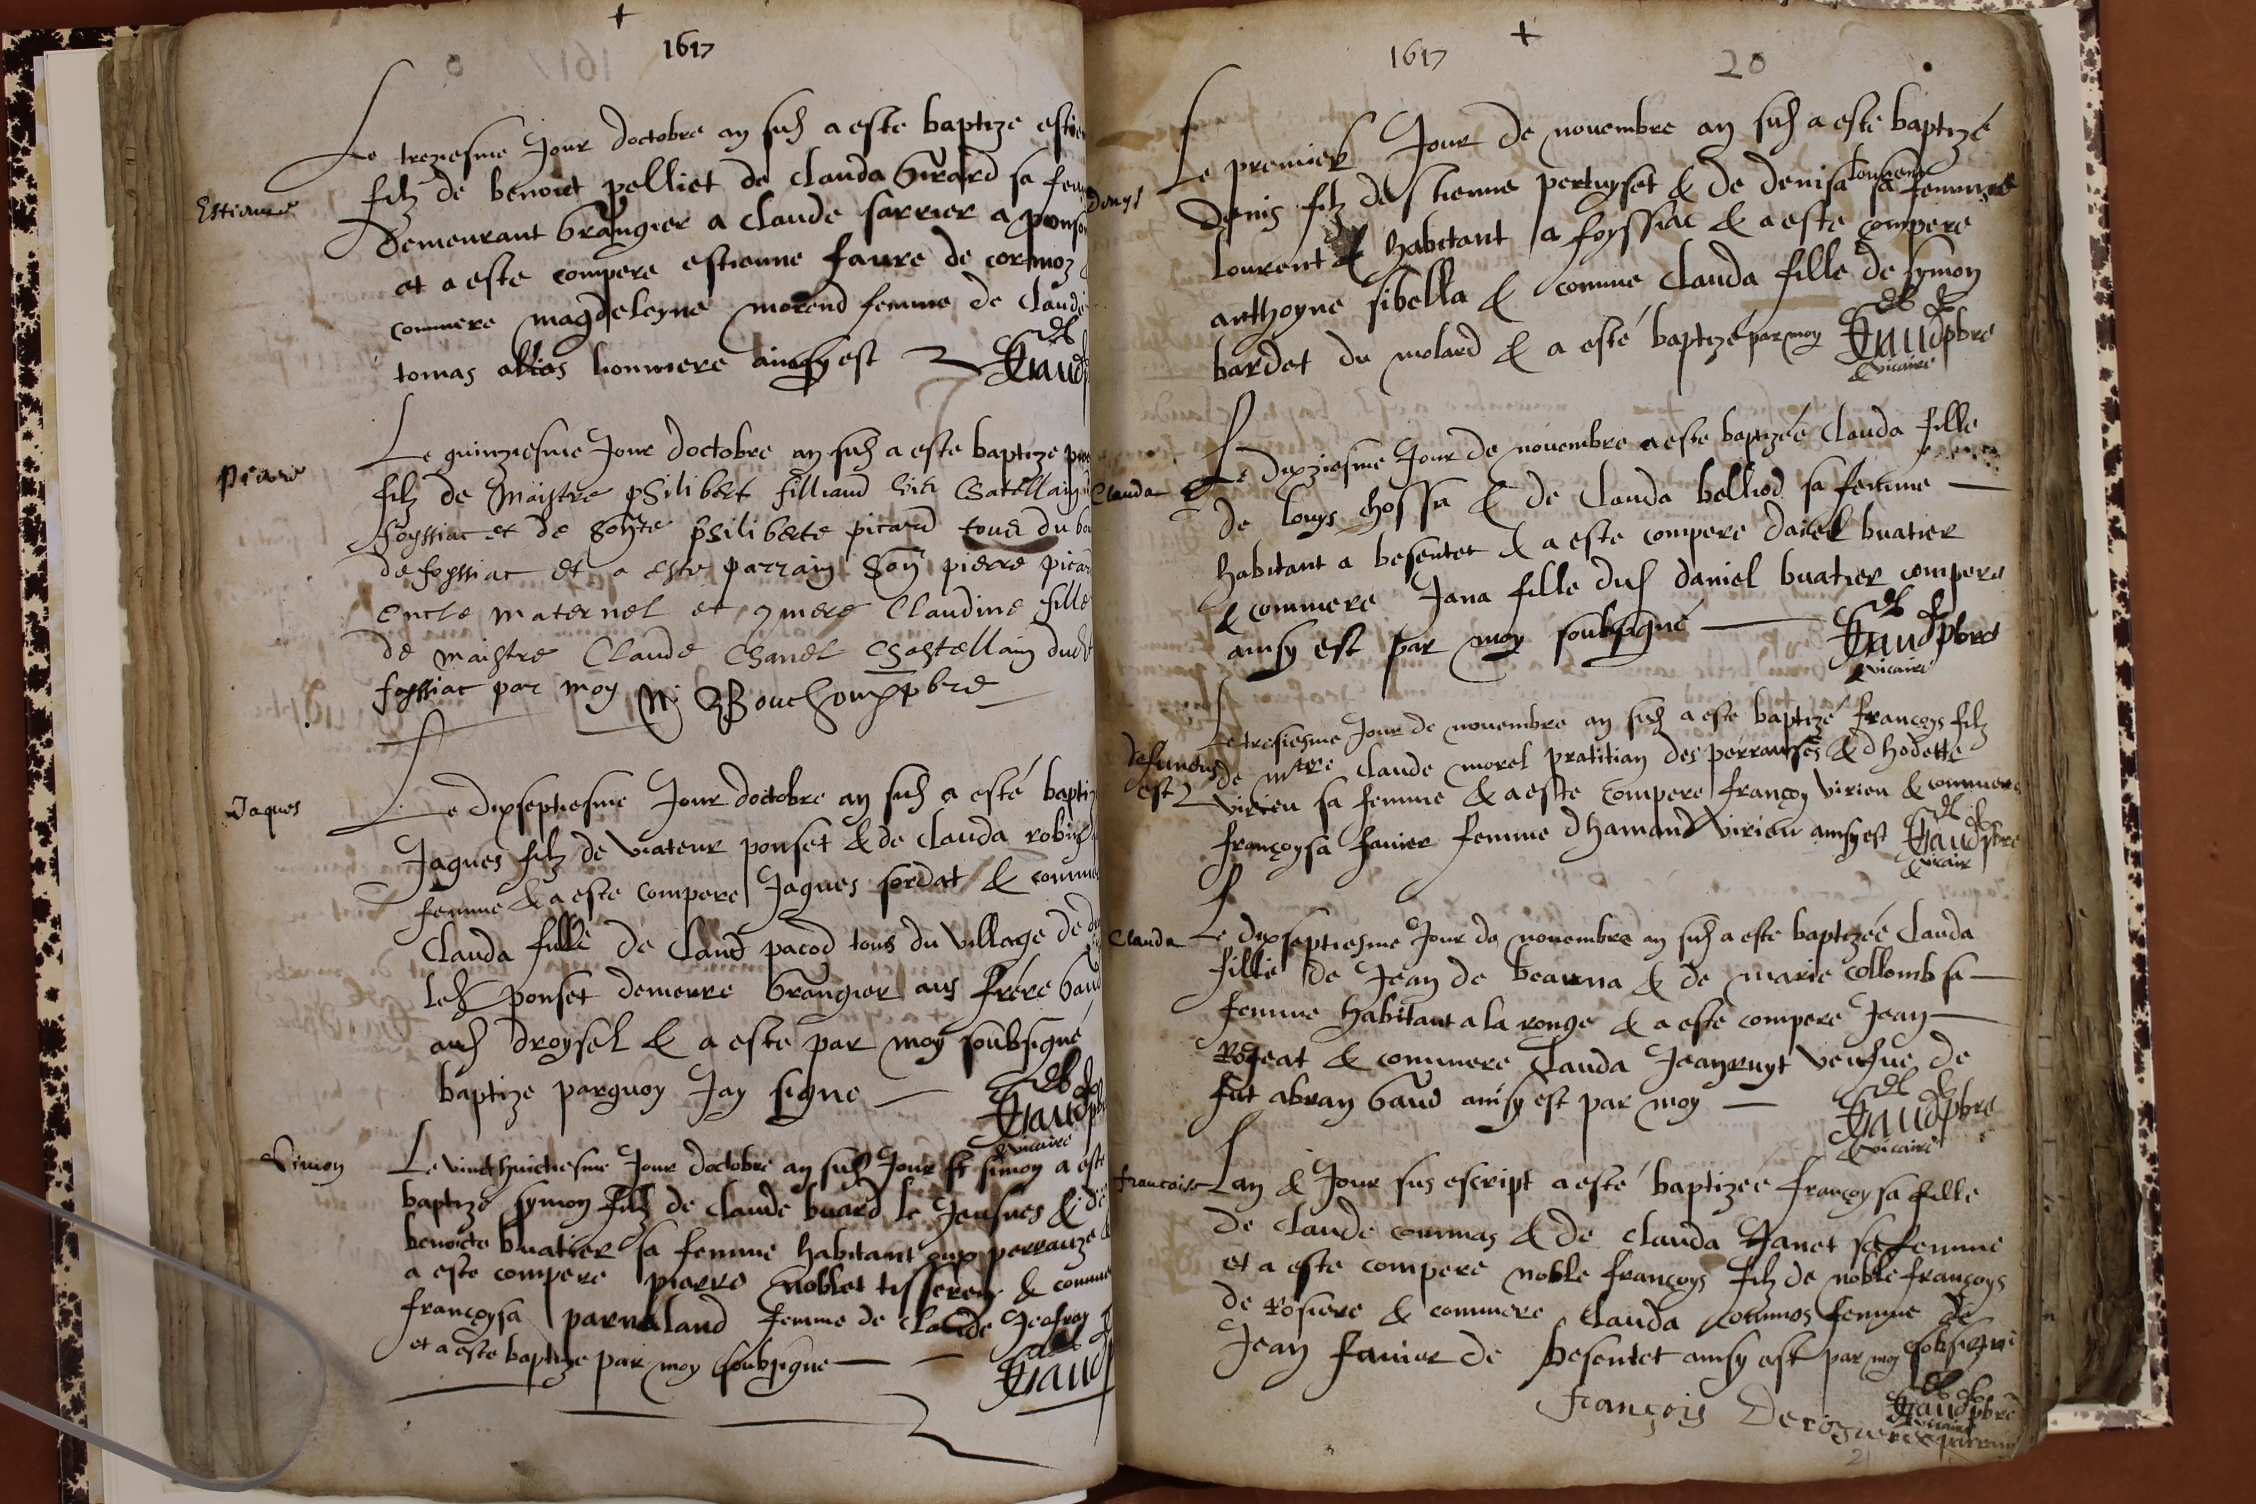 1617
Le treziesme Jour doctobre an susd a este baptize estie
Estienne
filz de benoict pelliet de clauda Girard sa fem
demeurant Grangier a claude farrier a ponso
et a este compere estienne faure de cormoz
commere magdeleyne morend femme de claude
tomas allias lionnere ainsy est
Le quinziesme Jour doctobre an susd a este baptize pier
Pierre
filz de Maistre philibert filliaud vis chatellain
foyssiac et de honte philiberte picard tous du bo
de foyssiac et a este parrain hon pierre picar
oncle maternel et commere Claudine fille
de maistre Claude Chanel Chastellain dud
foyssiac par moy N. Bouchoux pbre
Le dixseptiesme Jour doctobre an susd a esté baptiz
Jaques
Jaques filz de viateur ponset & de clauda robin
femme & a este compere Jaques sordat & comme
clauda fille de claud pacod tous du village de
led ponset demeure Grangier aus frere Gaud
aud droysel & a este par moy soubsigné
baptize parquoy Jay signe
vicaire
Simon
Le vincthuictiesme Jour doctobre an susd Jour st simon a este
baptize symon filz de claude buard le Jeusnes & de
benoicte buatier sa femme habitant aux perrauze &
a este compere pierre noblet tisseren & comme
françoysa parnaland femme de claude Jeofray
et a este baptize par moy soubsigne
1617
20
Le premier Jour de novembre an susd a este baptizé
Denys
denis filz destienne pertuyset & de denisa lourent sa femme
lourent & habitant a foyssiac & a este compere
anthoyne sibella & comme clauda fille de symon
bardet du molard & a esté baptizé par moy
pbre
& vicaire
Le dixziesme Jour de novembre a este baptizée clauda fille
Clauda
de louys chossa & de clauda belliod sa femme
habitant a besentet & a este compere daniel buatier
& commere Jana fille dud daniel buatier compere
ainsy est par moy soubsigné
pbre
vicaire
Le tresiesme Jour de novembre an susd a este baptizé françoys filz
de mtre claude morel pratitian des perrauses & dhodette
est
virieu sa femme & a este compere françoy virieu & commere
françoysa fanier femme dhamand virieu ainsy est
pbre
& vicair
Clauda
Le dixseptiesme Jour de novembre an susd a este baptizéé clauda
fillie de Jean de bearna & de marie collomb sa
femme habitant a la ronge & a esté compere Jean
Rogeat & commere clauda Jeanruyt veufue de
fut abran Gaud ainsy est par moy
pbre
& vicaire
francoise
Lan & Jour sus escript a esté baptizée françoysa fille
de claude commas & de clauda Janet sa femme
et a este compere noble françoys filz de noble françoys
de rosiere & commere clauda commos femme de
Jean fanier de besentet ainsy est par moy sobsigné
pbre
vicaire
françois